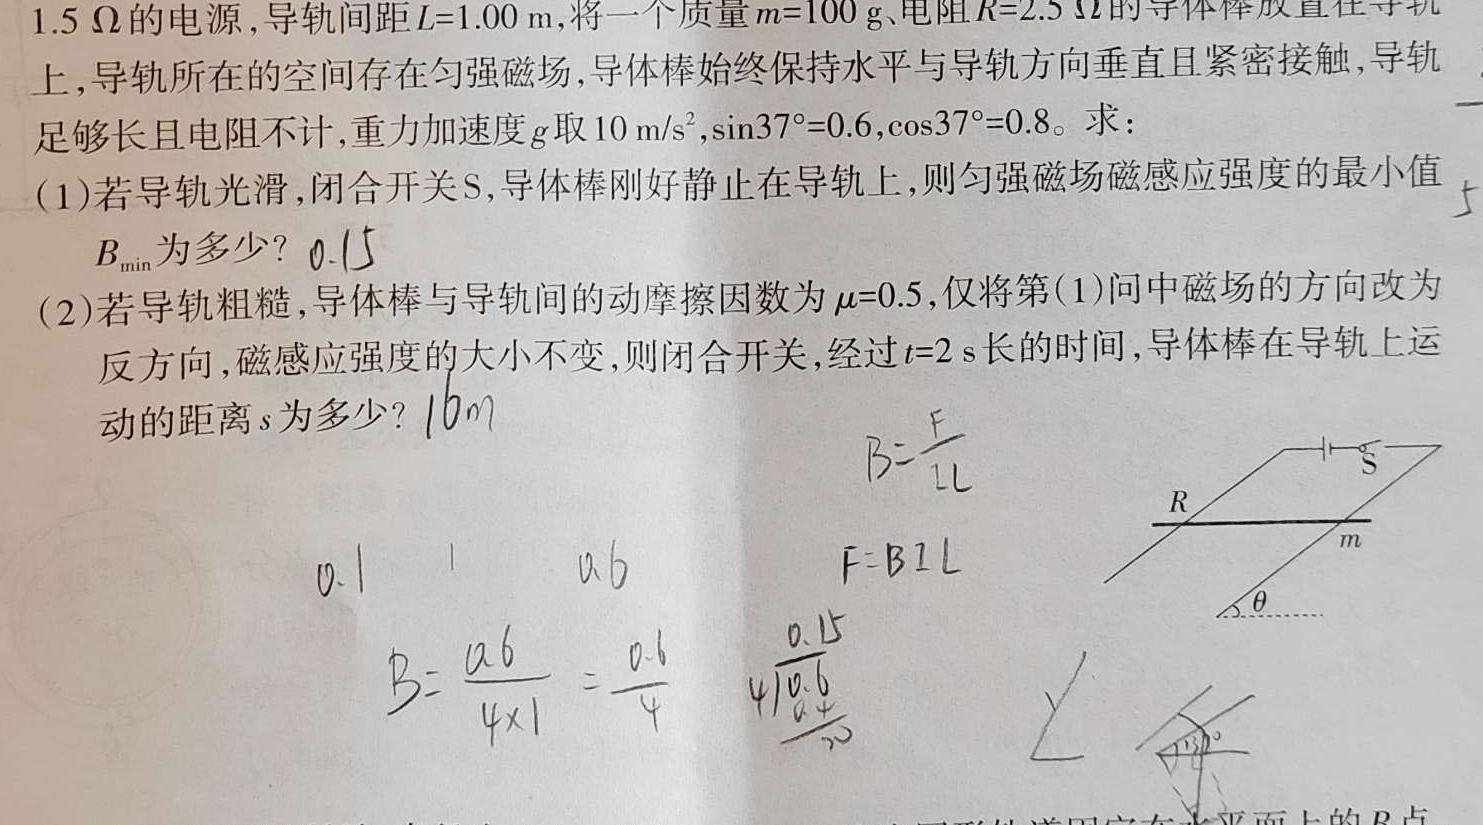 1.5 Ω的电源,导轨间距L=1.00 m,将一个质量m=100 g、电阻R=2.5 Ω的导体棒放置在导轨
上,导轨所在的空间存在匀强磁场,导体棒始终保持水平与导轨方向垂直且紧密接触,导轨
足够长且电阻不计,重力加速度g取10 m/s²,sin37°=0.6,cos37°=0.8。求:
(1)若导轨光滑,闭合开关S,导体棒刚好静止在导轨上,则匀强磁场磁感应强度的最小值
Bmin为多少? 0.15
5
(2)若导轨粗糙,导体棒与导轨间的动摩擦因数为μ=0.5,仅将第(1)问中磁场的方向改为
反方向,磁感应强度的大小不变,则闭合开关,经过t=2 s长的时间,导体棒在导轨上运
动的距离s为多少? 16m
B=F/IL
S
R
m
θ
0.1 1 0.6
F=BIL
B=0.6/4×1=0.6/4
0.15
4 0.6
0.4
20